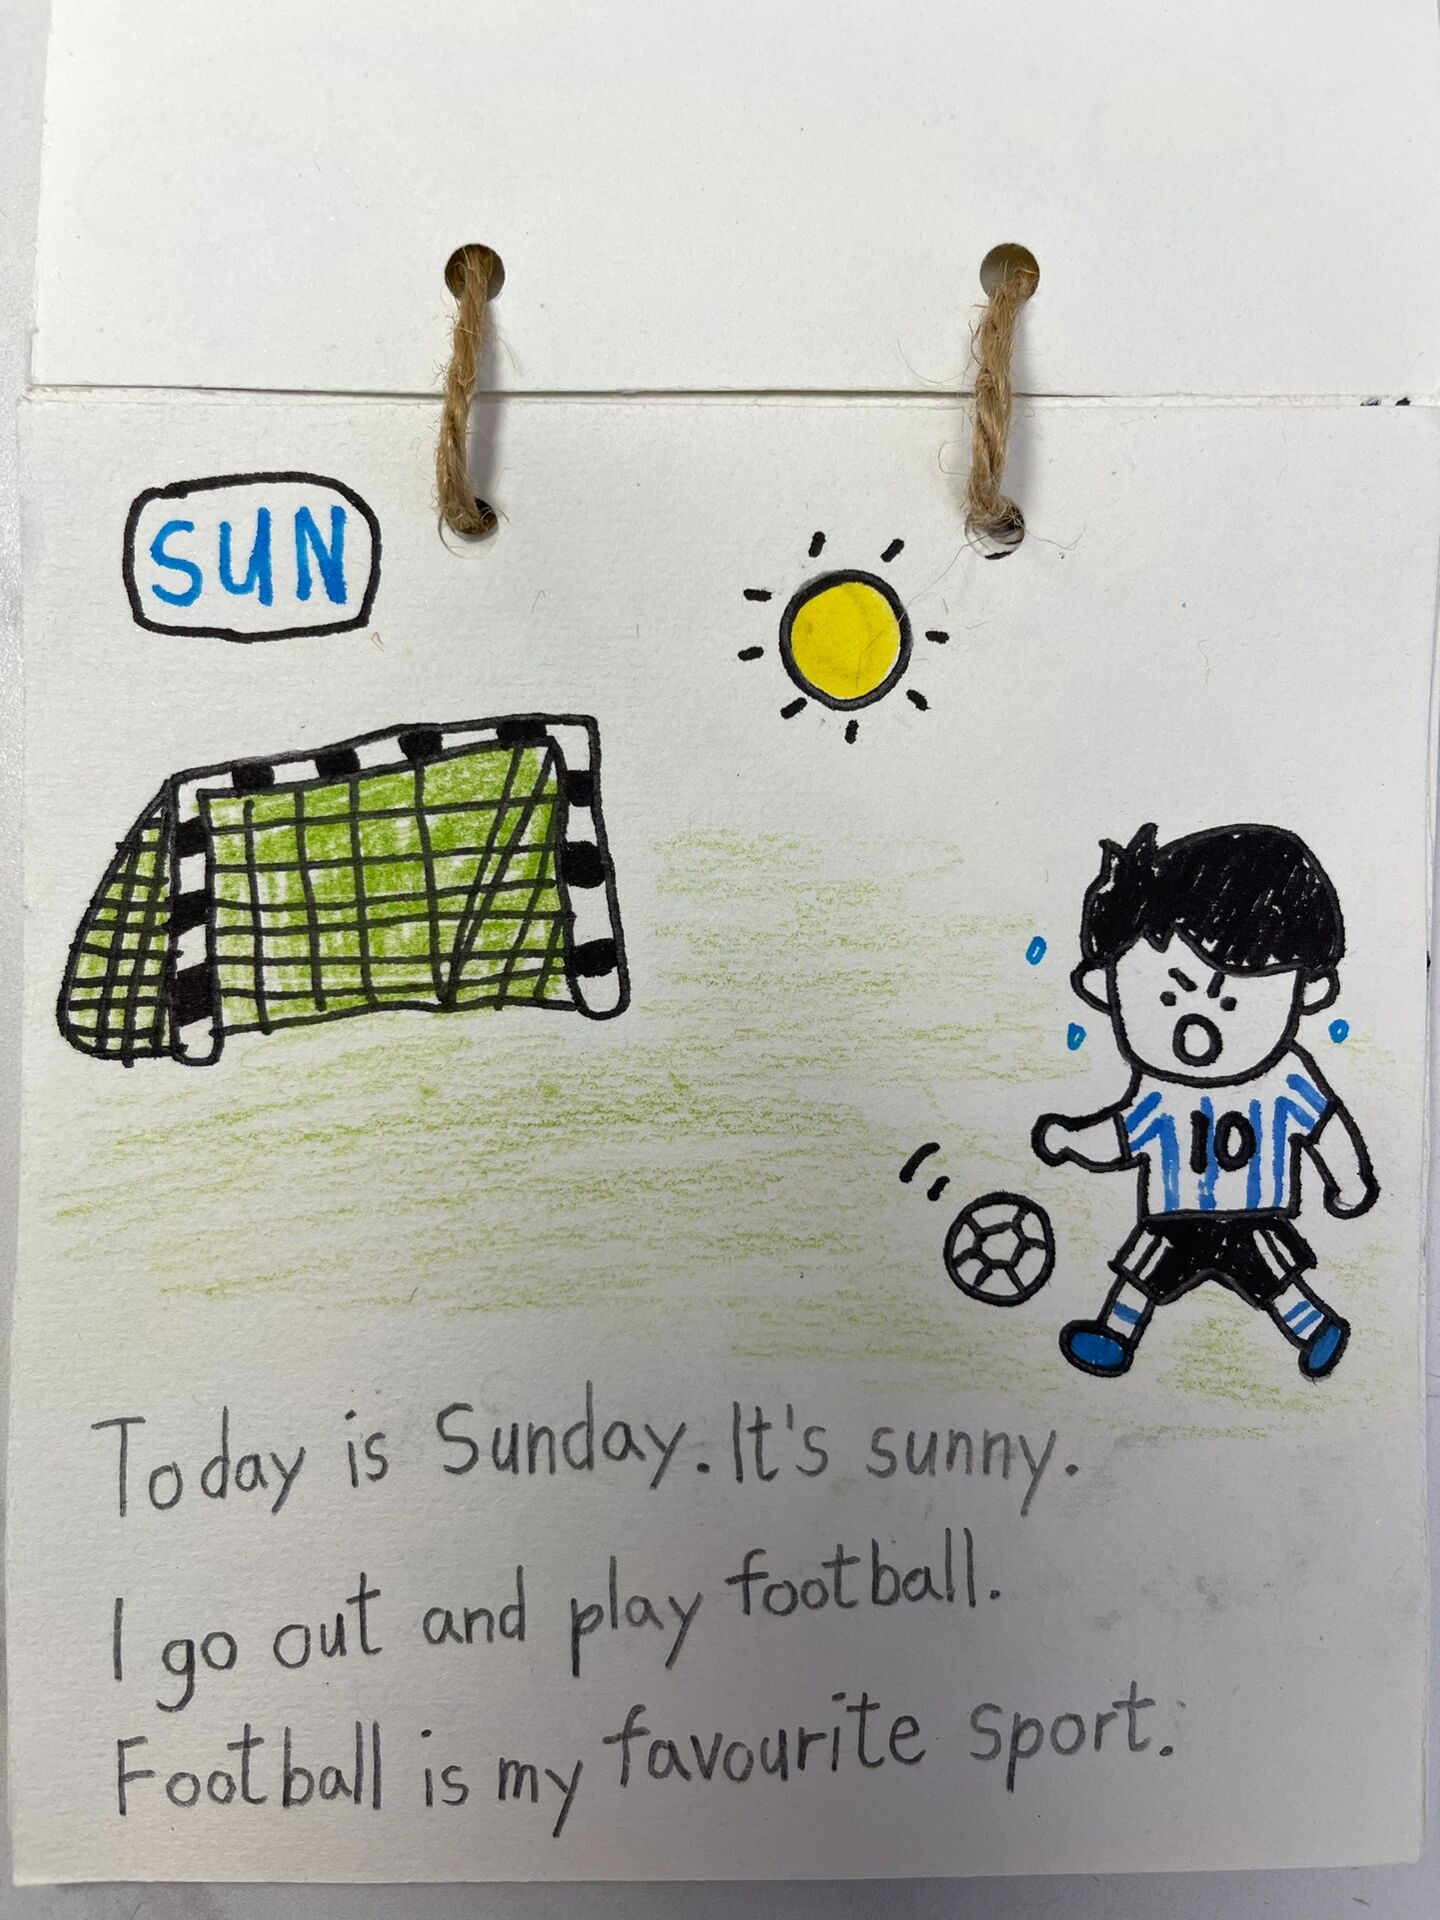 SUN
10
Today is Sunday. It's sunny.
I go out and play football.
Football is my favourite sport.